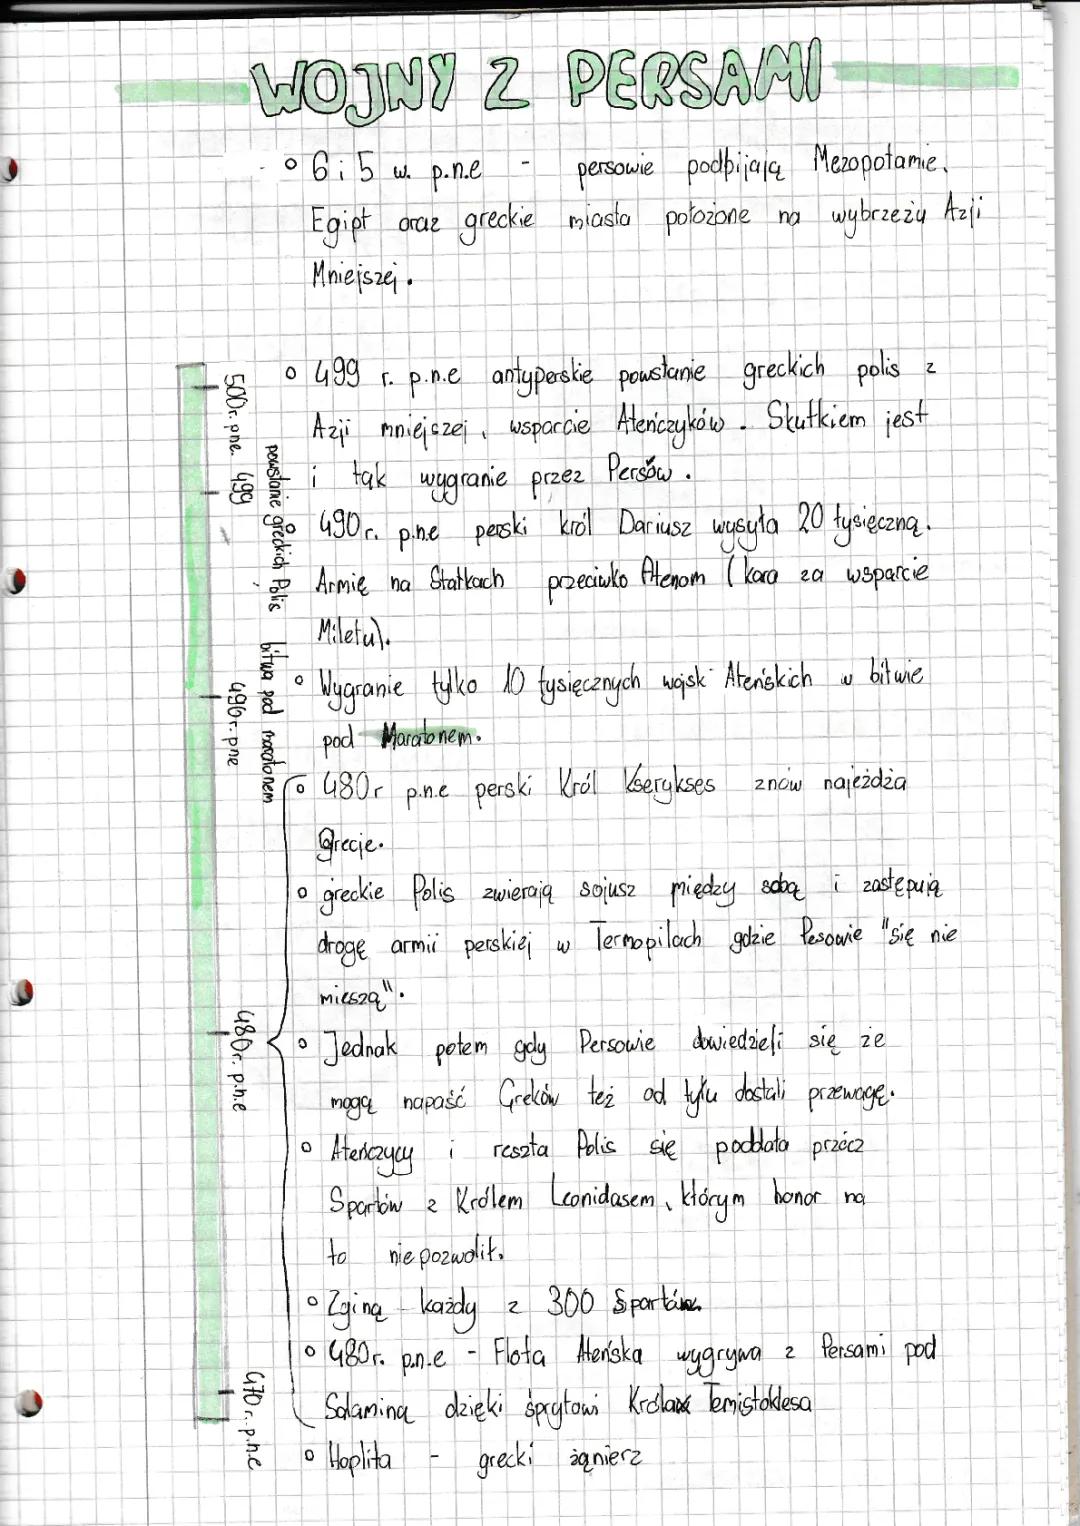 WOJNY Z PERSAMI
6 i 5 w. p.n.e - persowie podbijają Mezopotamie,
Egipt oraz greckie miasta położone na wybrzeżu Azji
Mniejszej.
499 r. p.n.e antyperskie powstanie greckich polis z
Azji mniejszej, wsparcie Ateńczyków. Skutkiem jest
i tak wygranie przez Persów.
490 r. p.n.e perski król Dariusz wysyła 20 tysięczną.
Armię na Statkach przeciwko Atenom (kara za wsparcie
Miletu).
Wygranie tylko 10 tysięcznych wojsk Ateńskich w bitwie
pod Maratonem.
480r p.n.e perski Król Kserykses znów najeżdża
Grecje.
greckie Polis zwierają sojusz między sobą i zastępują
drogę armii perskiej w Termopilach gdzie Pesowie "się nie
mieszą".
Jednak potem gdy Persowie dowiedzieli się że
mogą napaść Greków też od tyłu dostali przewagę.
Ateńczycy i reszta Polis się poddała przócz
Spartów z Królem Leonidasem, którym honor na
to nie pozwolił.
Zginą każdy z 300 Spartów
480r. p.n.e - Flota Ateńska wygrywa z Persami pod
Salaminą dzięki sprytowi Króla Temistoklesa
Hoplita - grecki żąnierz
500r. pne. 499
powstanie greckich Polis
bitwa pod maratonem
490r. pne
480r. p.n.e
470r. p.n.e